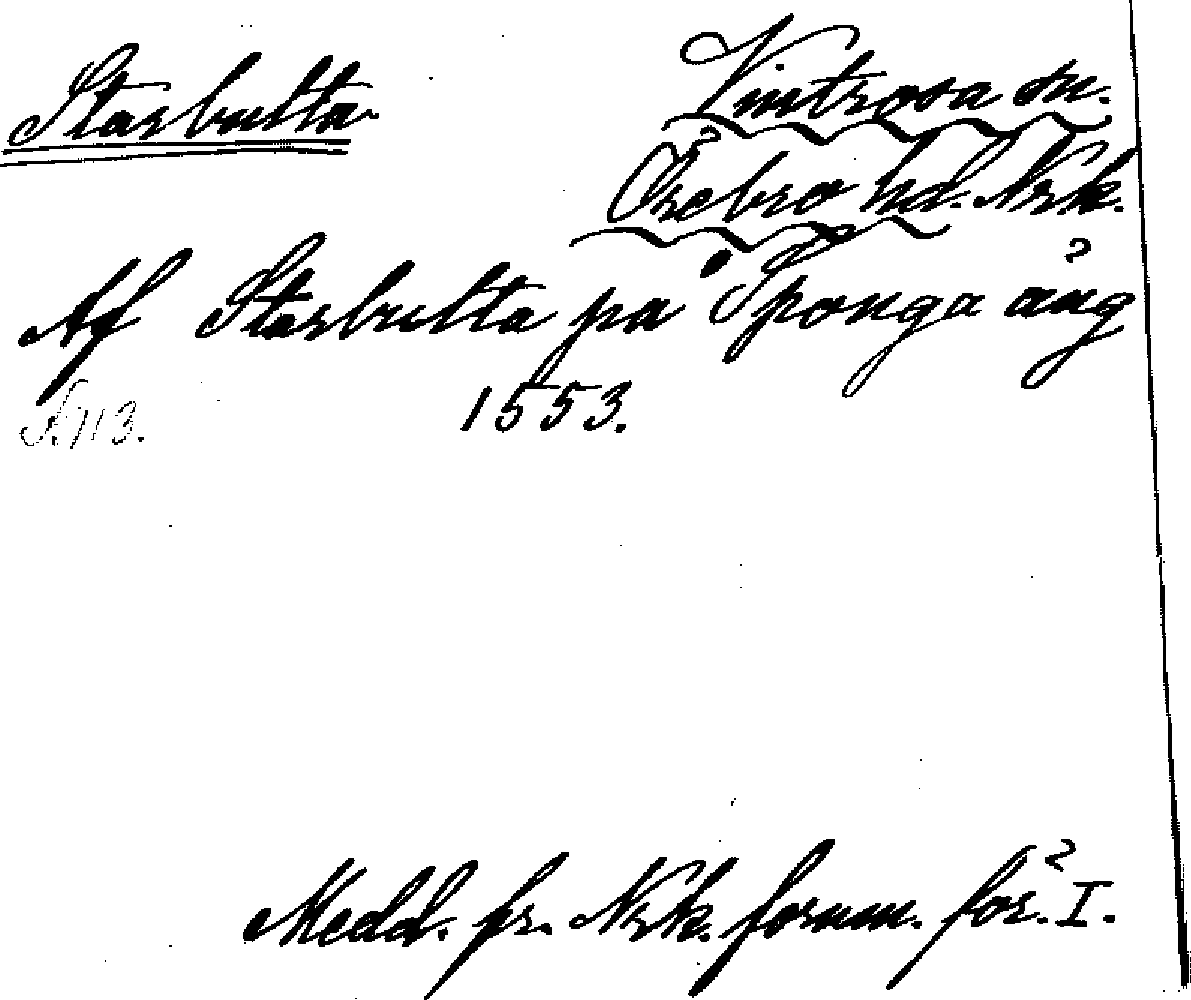 Starbulta.
Vintrosa sn.
Örebro hd. Nrk.
Af Starbulta på Sponga äng
1553.
S. 113.
Medd. fr. Nrk. fornm. för. I.